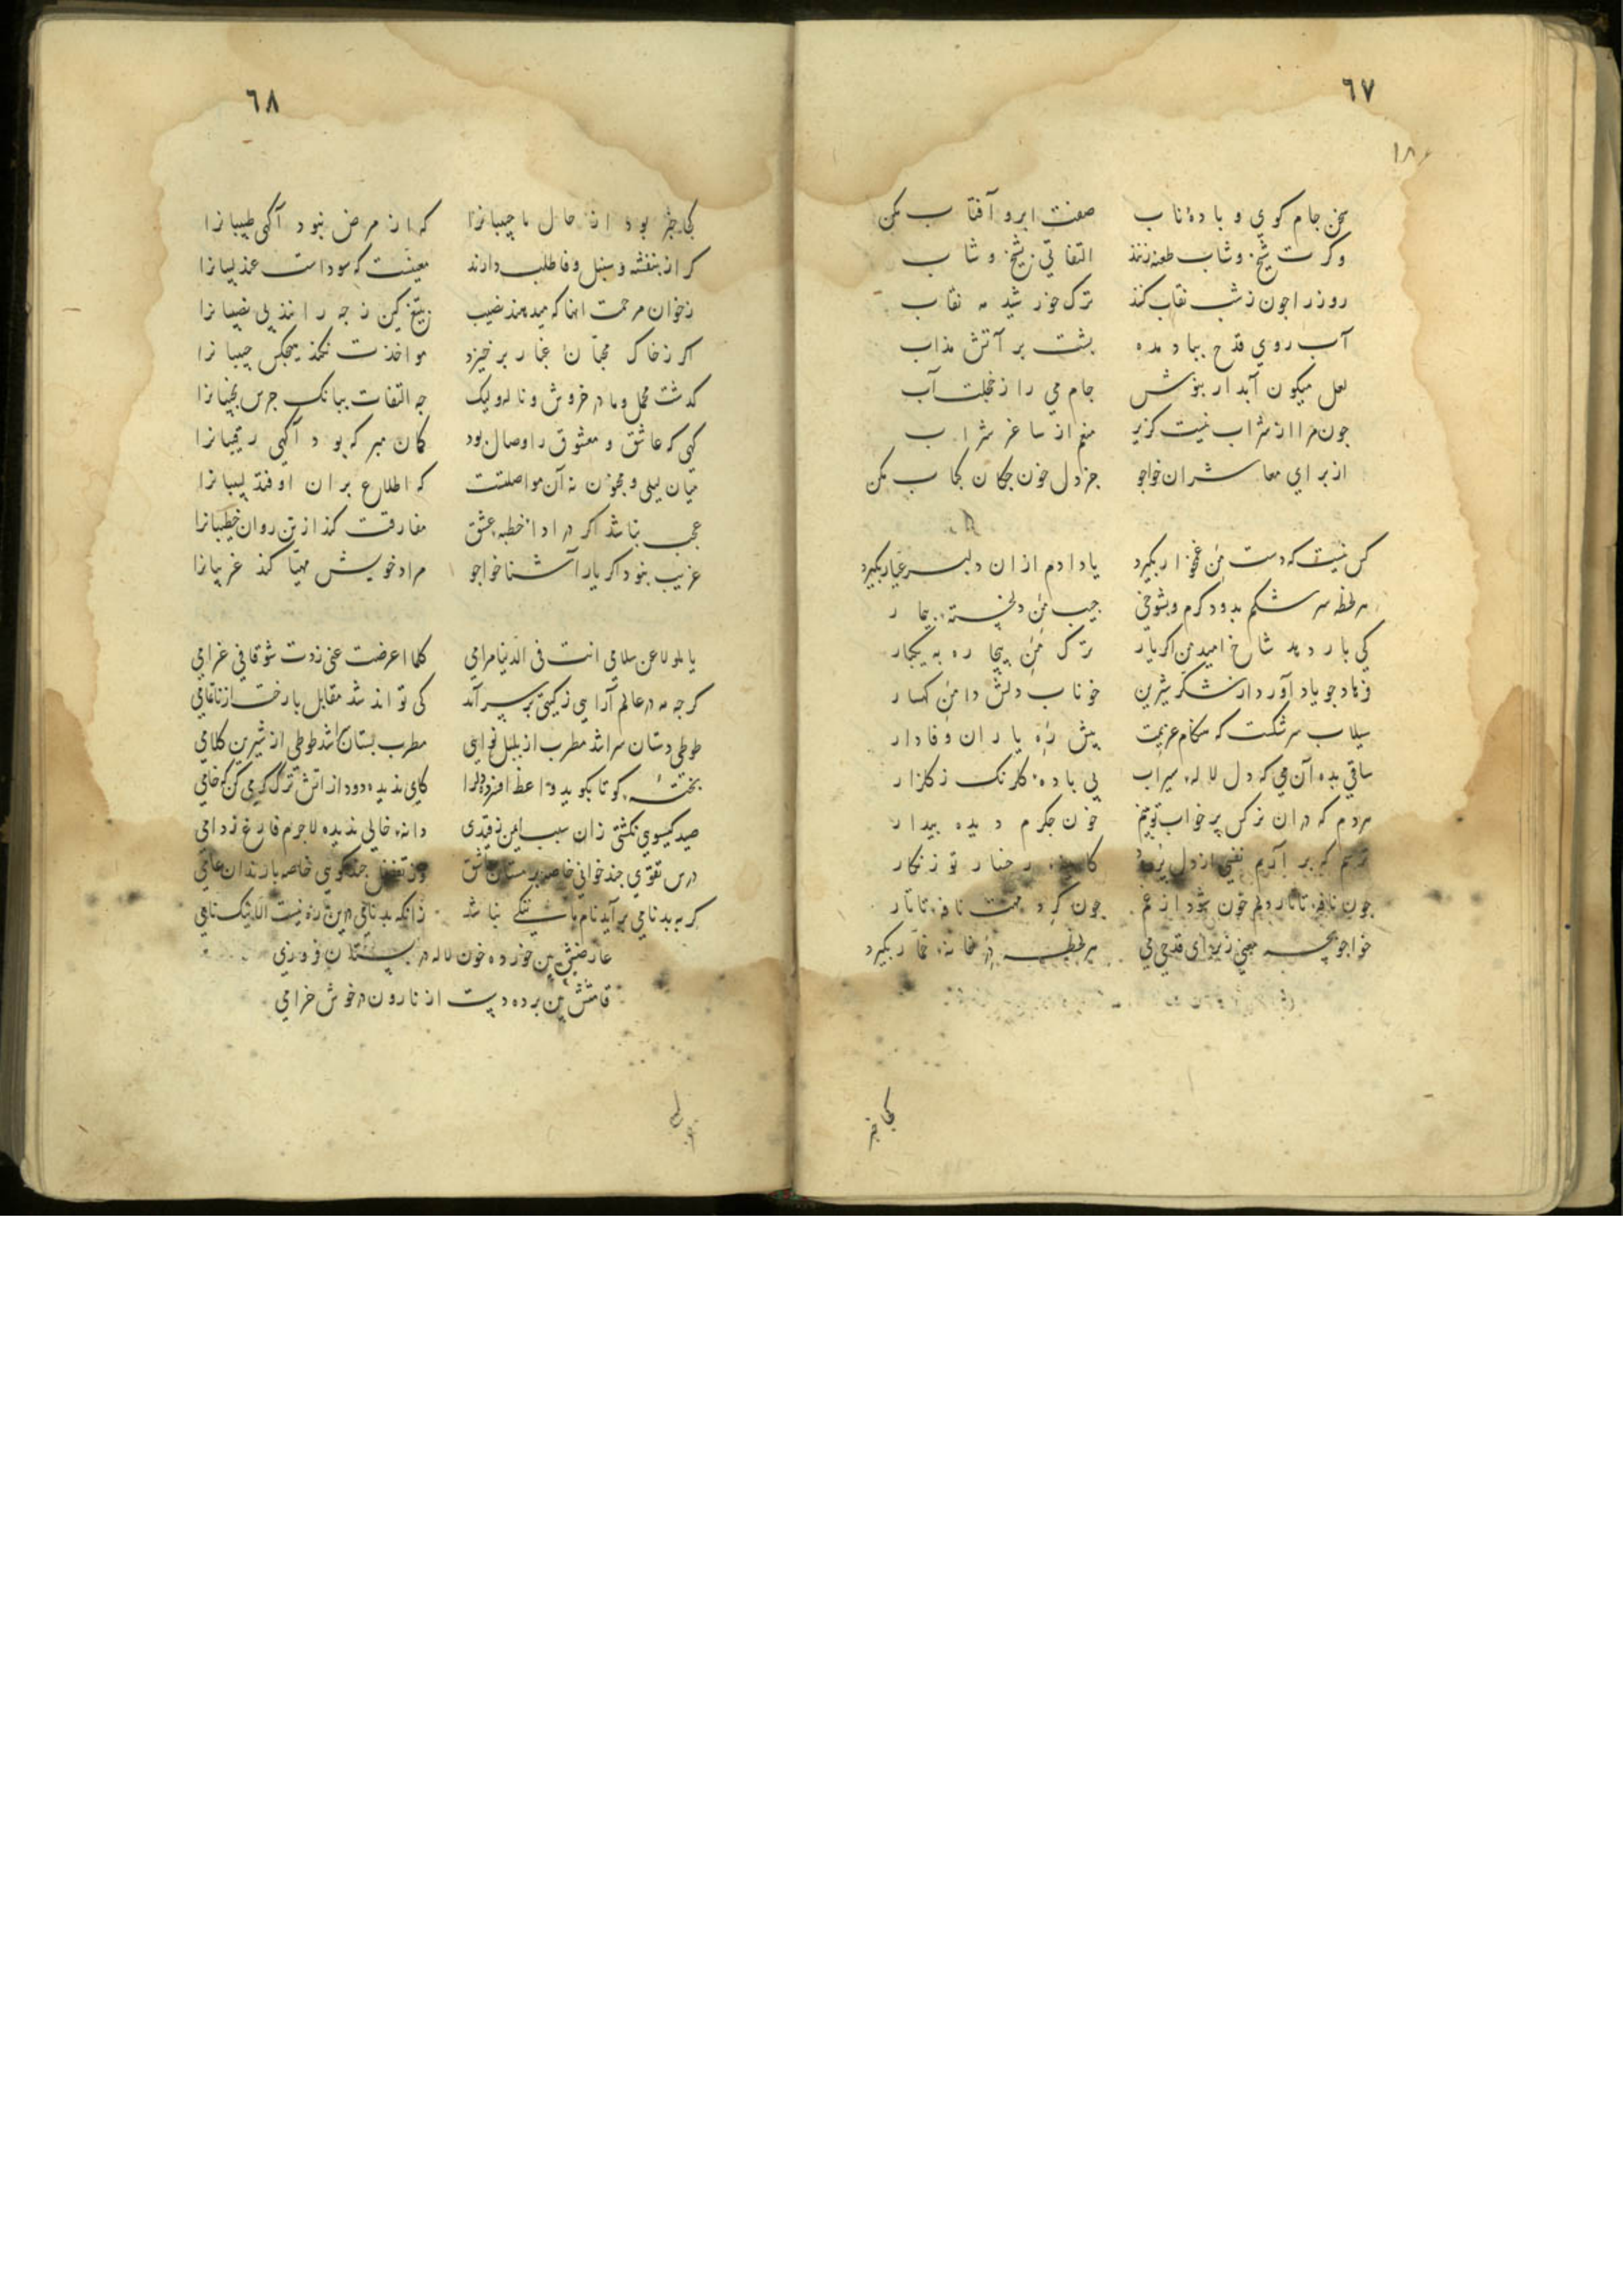 ٦٧
سخن جام كوي و بادۀ ناب صفت ابرو آفتاب مكن
وكرت شيخ و شاب طعنه زنند التفاتي بشيخ و شاب
روز را جون ز شب نقاب كند ترك خورشيد مه نقاب
آب روي قدح بباد مده بشت بر آتش مذاب
لعل ميكون آبدار بنوش جام مي را ز خجلت آب
جون مرا از شراب نيست كزير منعم از ساغر شراب
از براي معاشران خواجو جز دل خون جكان كباب مكن
كس نيست كه دست من غمخوار بكيرد يا دادم از ان دلبر عيار بكيرد
هر لحظه سرشكم بدود كرم و بشوخي جيب من دلخسته بيمار
كي بار دهد شاخ اميد من اكر يار ترك من بيچاره به يكبار
فرهاد جو ياد آورد از شكر شيرين خوناب دلش دامن كهسار
سيلاب سرشكت كه هنكام عزيمت بيش ره ياران وفادار
ساقي بده آن مي كه دل لاله سيراب بي باده كلرنك ز كلزار
مردم كه در ان نركس پر خواب تو بينم خون جكرم ديده بيدار
ترسم كه بر آرم نفسي از دل رخسار تو زنكار
جون نافه تاتار دلم خون شود از غم جون كرد نافه تاتار
خواجو مي هر لحظه در خانه خمار بكيرد
كجا خبر
٦٨
كجا خبر بود از حال ما حبيبانرا كه از مرض نبود آكهي طبيبانرا
كر از بنفشه و سنبل وفا طلب دارند معينست كه سوداست عندليبانرا
ز خوان مرحمت آنها كه ميدهند نصيب بتيغ كين ز چه رانند بي نصيبانرا
اكر ز خاك محبان غبار برخيزد مواخذت نكند هيچكس حبيبانرا
كذشت محمل و ما در خروش و ناله وليك چه التفات ببانك جرس نجيبانرا
كسي كه عاشق و معشوق را وصال بود كمان مبر كه بود آكهي رقيبانرا
ميان ليلي و مجنون نه آن مواصلتست كه اطلاع بر ان اوفتد لبيبانرا
عجب نباشد اكر در اداء خطبه عشق مفارقت كند از تن روان خطيبانرا
غريب نبود اكر يار آشنا خواجو مراد خويش مهيا كند غريبانرا
يا ملولا عن سلامي انت في الدنيا مرامي كلما اعرضت عني زدت شوقا في غرامي
كرچه مه در عالم آرايي ز كيتي بر سر آمد كي تواند شد مقابل با رخت از ناتمامي
طوطي دستان سرا شد مطرب از بلبل نوايي مطرب بستان شد طوطي از شيرين كلامي
بختۀ كو تا بكويد واعظ افسرده را كاي نديده دود از آتش ترك كرمي كن كه خامي
صيد كيسوي نكشتي زان سبب ايمن ز قيدي دانه خالي نديده لاجرم فارغ ز دامي
درس تقوي چند خواني خاصه بر مستان عاشق وز تفضل چند كوي خاصه با رندان عامي
كر به بدنامي برآيد نام ما ننكي نباشد زانكه بدنامي درين ره نيست الا نيك نامي
عارضش بين خورده خون لاله در بستان فروزي
قامتش بين برده دست از نارون در خوش خرامي